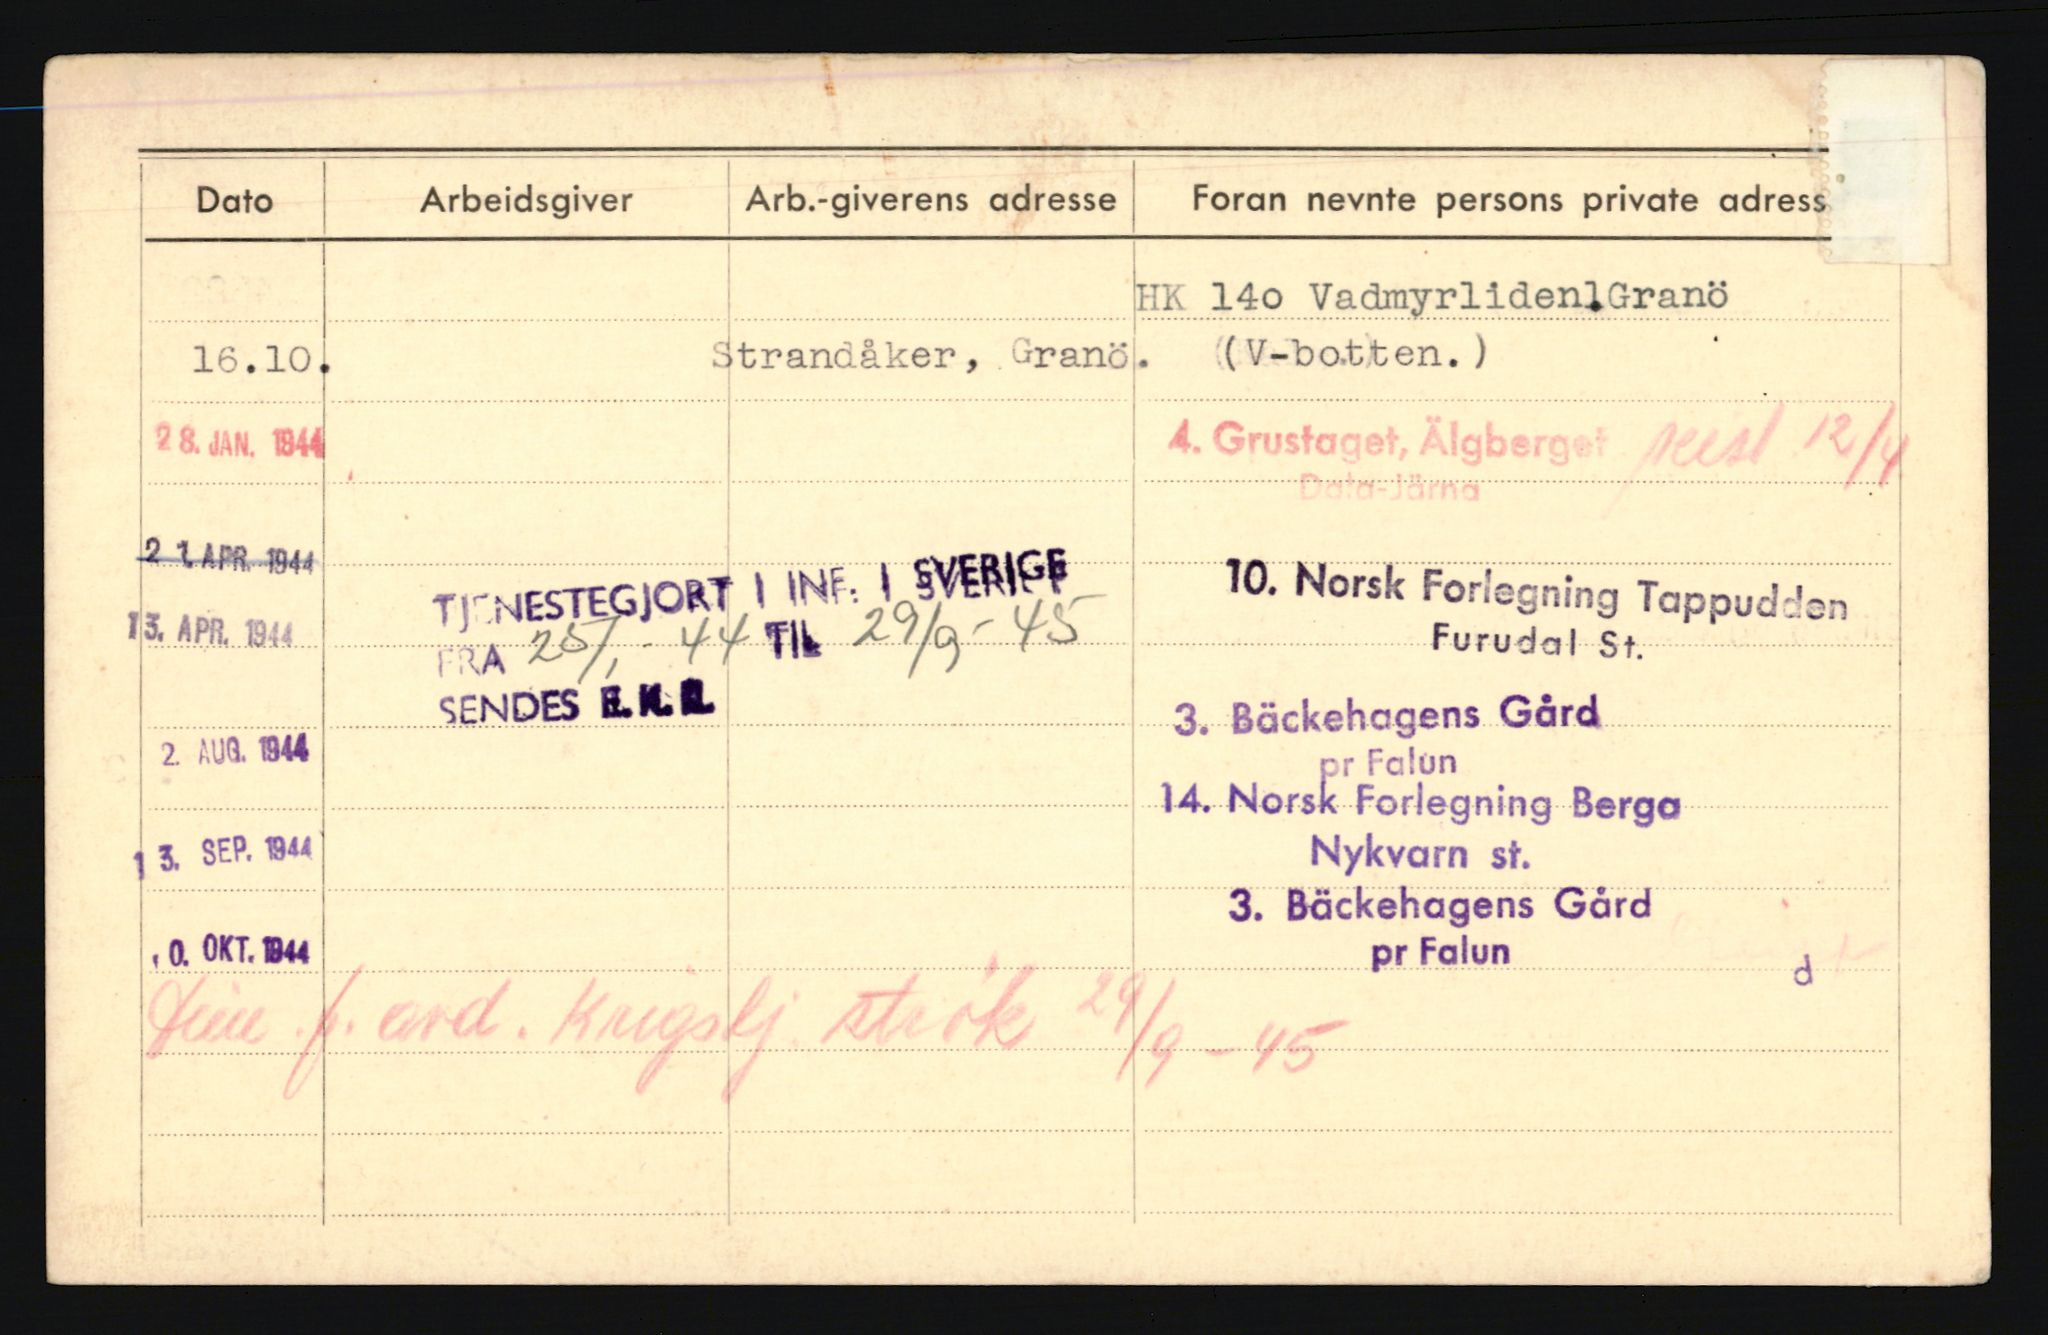 Dato Arbeidsgiver Arb.-giverens adresse Foran nevnte persons private adress
HK 14o Vadmyrliden. Granö
16.10. Strandåker, Granö. (V-botten.)
28. JAN. 1944 4. Grustaget, Älgberget reist 12/4
Dala-Järna
21. APR. 1944 10. Norsk Forlegning Tappudden
TJENESTEGJORT I INF. I SVERIGE
13. APR. 1944 Furudal St.
FRA 25/1-44 TIL 29/9-45
SENDES 3. Bäckehagens Gård
2. AUG. 1944 pr Falun
14. Norsk Forlegning Berga
13. SEP. 1944 Nykvarn st.
3. Bäckehagens Gård
0. OKT. 1944 pr Falun d
f. avd. 29/9-45